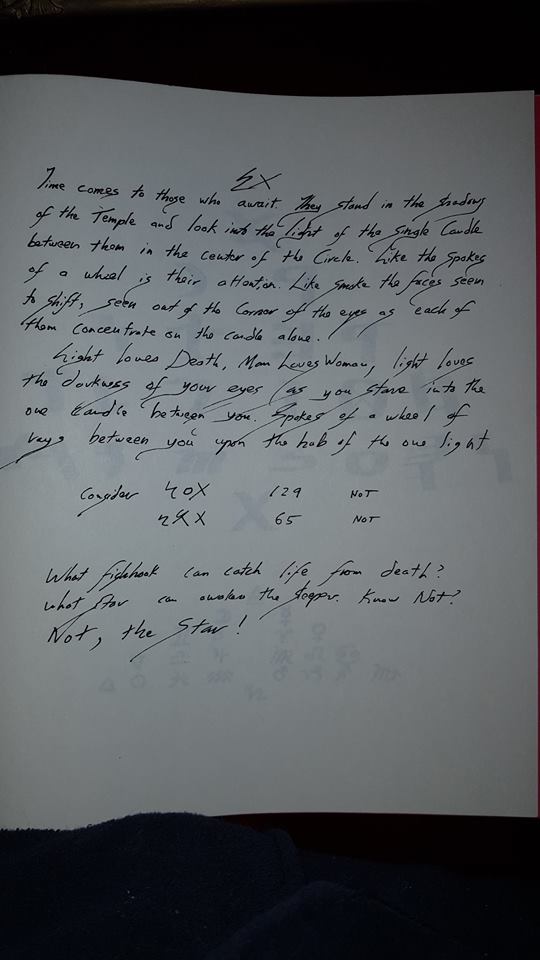 Time comes to those who await. They stand in the shadows
of the Temple and look into the light of the Single Candle
between them in the center of the Circle. Like the spokes
of a wheel is their attention. Like smoke the faces seem
to shift, seen out of the Corner of the eyes as each of
them concentrate on the candle alone.
Light loves Death, Man Loves Woman, light loves
the darkness of your eyes as you stare into the
one Candle between you. Spokes of a wheel of
rays between you upon the hub of the one light
Consider 129 NOT
65 NOT
What fishhook can catch life from death?
What Star can awaken the Know Not?
Not, the Star!